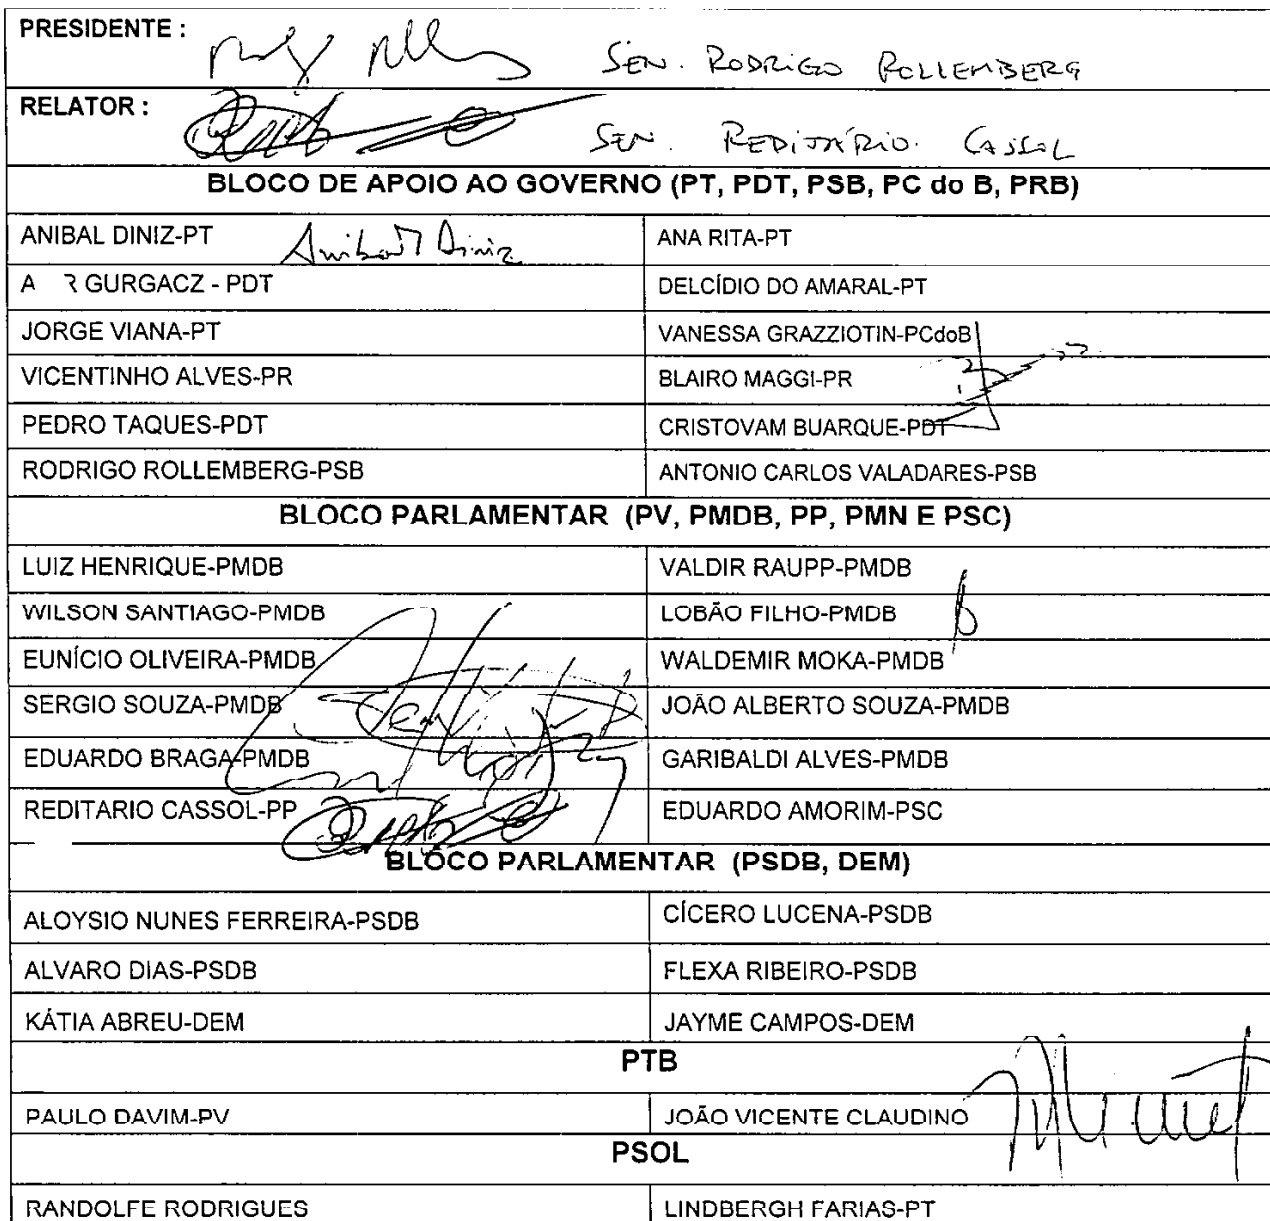 PRESIDENTE : SEN. RODRIGO ROLLEMBERG
RELATOR : SEN. REDITÁRIO. CASSOL
BLOCO DE APOIO AO GOVERNO (PT, PDT, PSB, PC do B, PRB)
ANIBAL DINIZ-PT Anibal Diniz ANA RITA-PT
A R GURGACZ - PDT DELCÍDIO DO AMARAL-PT
JORGE VIANA-PT VANESSA GRAZZIOTIN-PCdoB
VICENTINHO ALVES-PR BLAIRO MAGGI-PR
PEDRO TAQUES-PDT CRISTOVAM BUARQUE-PDT
RODRIGO ROLLEMBERG-PSB ANTONIO CARLOS VALADARES-PSB
BLOCO PARLAMENTAR (PV, PMDB, PP, PMN E PSC)
LUIZ HENRIQUE-PMDB VALDIR RAUPP-PMDB
WILSON SANTIAGO-PMDB LOBÃO FILHO-PMDB
EUNÍCIO OLIVEIRA-PMDB WALDEMIR MOKA-PMDB
SERGIO SOUZA-PMDB JOÃO ALBERTO SOUZA-PMDB
EDUARDO BRAGA-PMDB GARIBALDI ALVES-PMDB
REDITARIO CASSOL-PP EDUARDO AMORIM-PSC
BLOCO PARLAMENTAR (PSDB, DEM)
ALOYSIO NUNES FERREIRA-PSDB CÍCERO LUCENA-PSDB
ALVARO DIAS-PSDB FLEXA RIBEIRO-PSDB
KÁTIA ABREU-DEM JAYME CAMPOS-DEM
PTB
PAULO DAVIM-PV JOÃO VICENTE CLAUDINO
PSOL
RANDOLFE RODRIGUES LINDBERGH FARIAS-PT